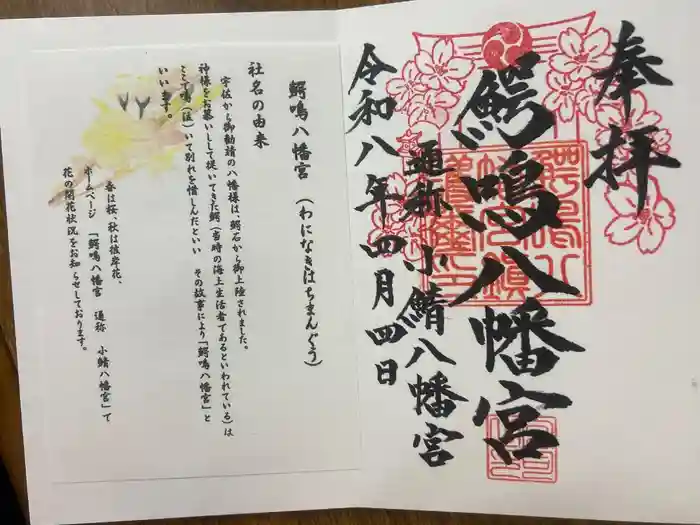 奉拝
鰐鳴八幡宮
通称 小鯖八幡宮
令和八年四月四日
鰐鳴八幡宮 (わになきはちまんぐう)
社名の由来
宇佐から御勧請の八幡様は、鰐石から御上陸されました。
神様をお慕いして従いてきた鰐(当時の海上生活者であるといわれている)は
とても鳴(泣)いて別れを惜しんだといい その故事により「鰐鳴八幡宮」と
いいます。
春は桜、秋は彼岸花、
ホームページ 「鰐鳴八幡宮 通称 小鯖八幡宮」で
花の開花状況をお知らせしております。